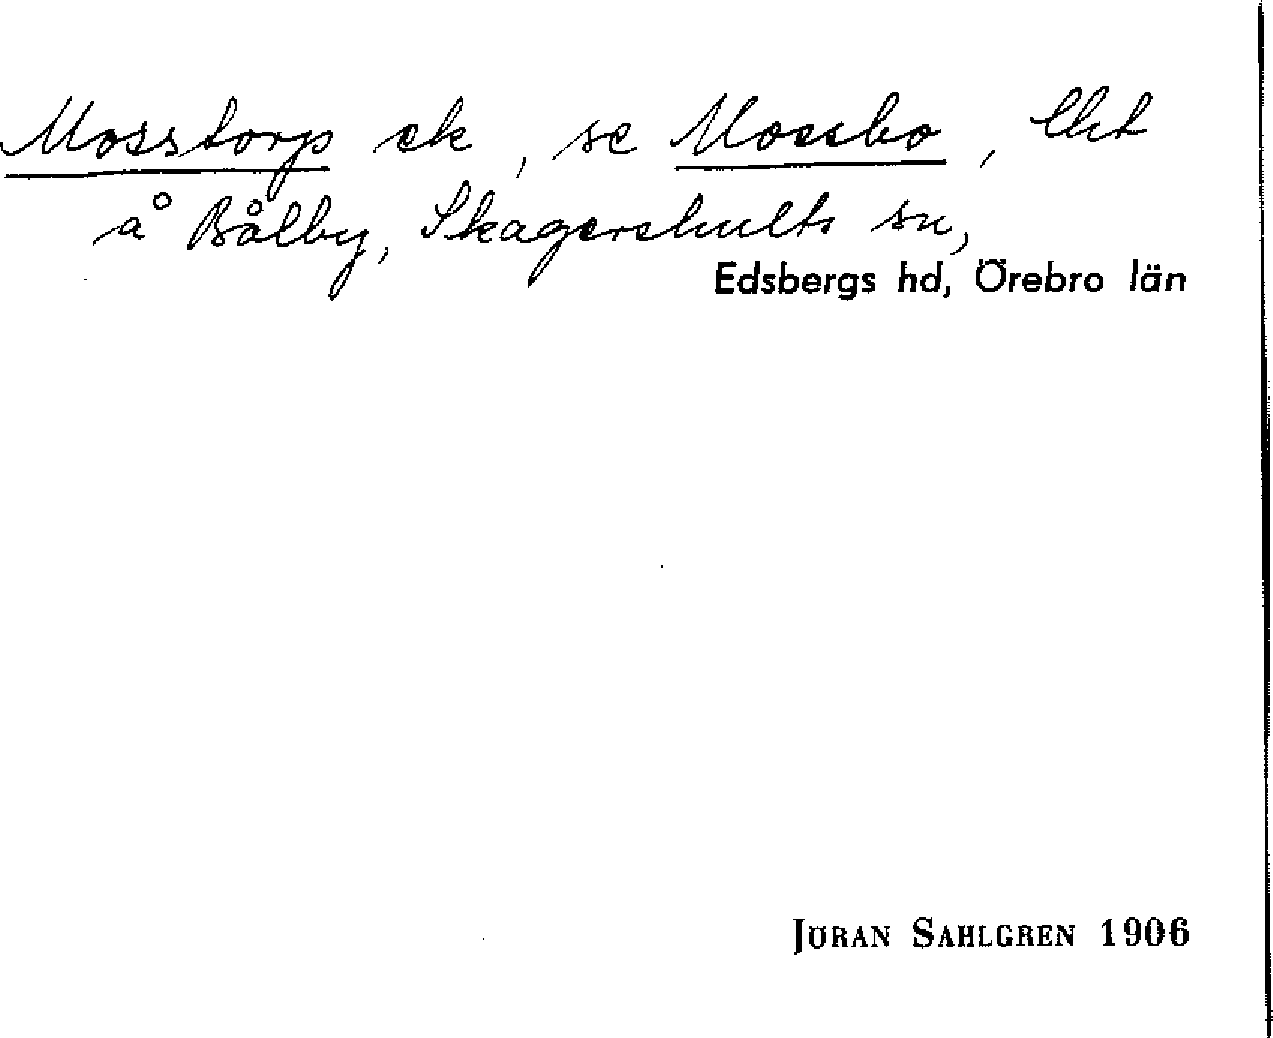 Mosstorp sk, se Mossbo, lht
å Bålby, Skagershults sn,
Edsbergs hd, Örebro län
JÖRAN SAHLGREN 1906